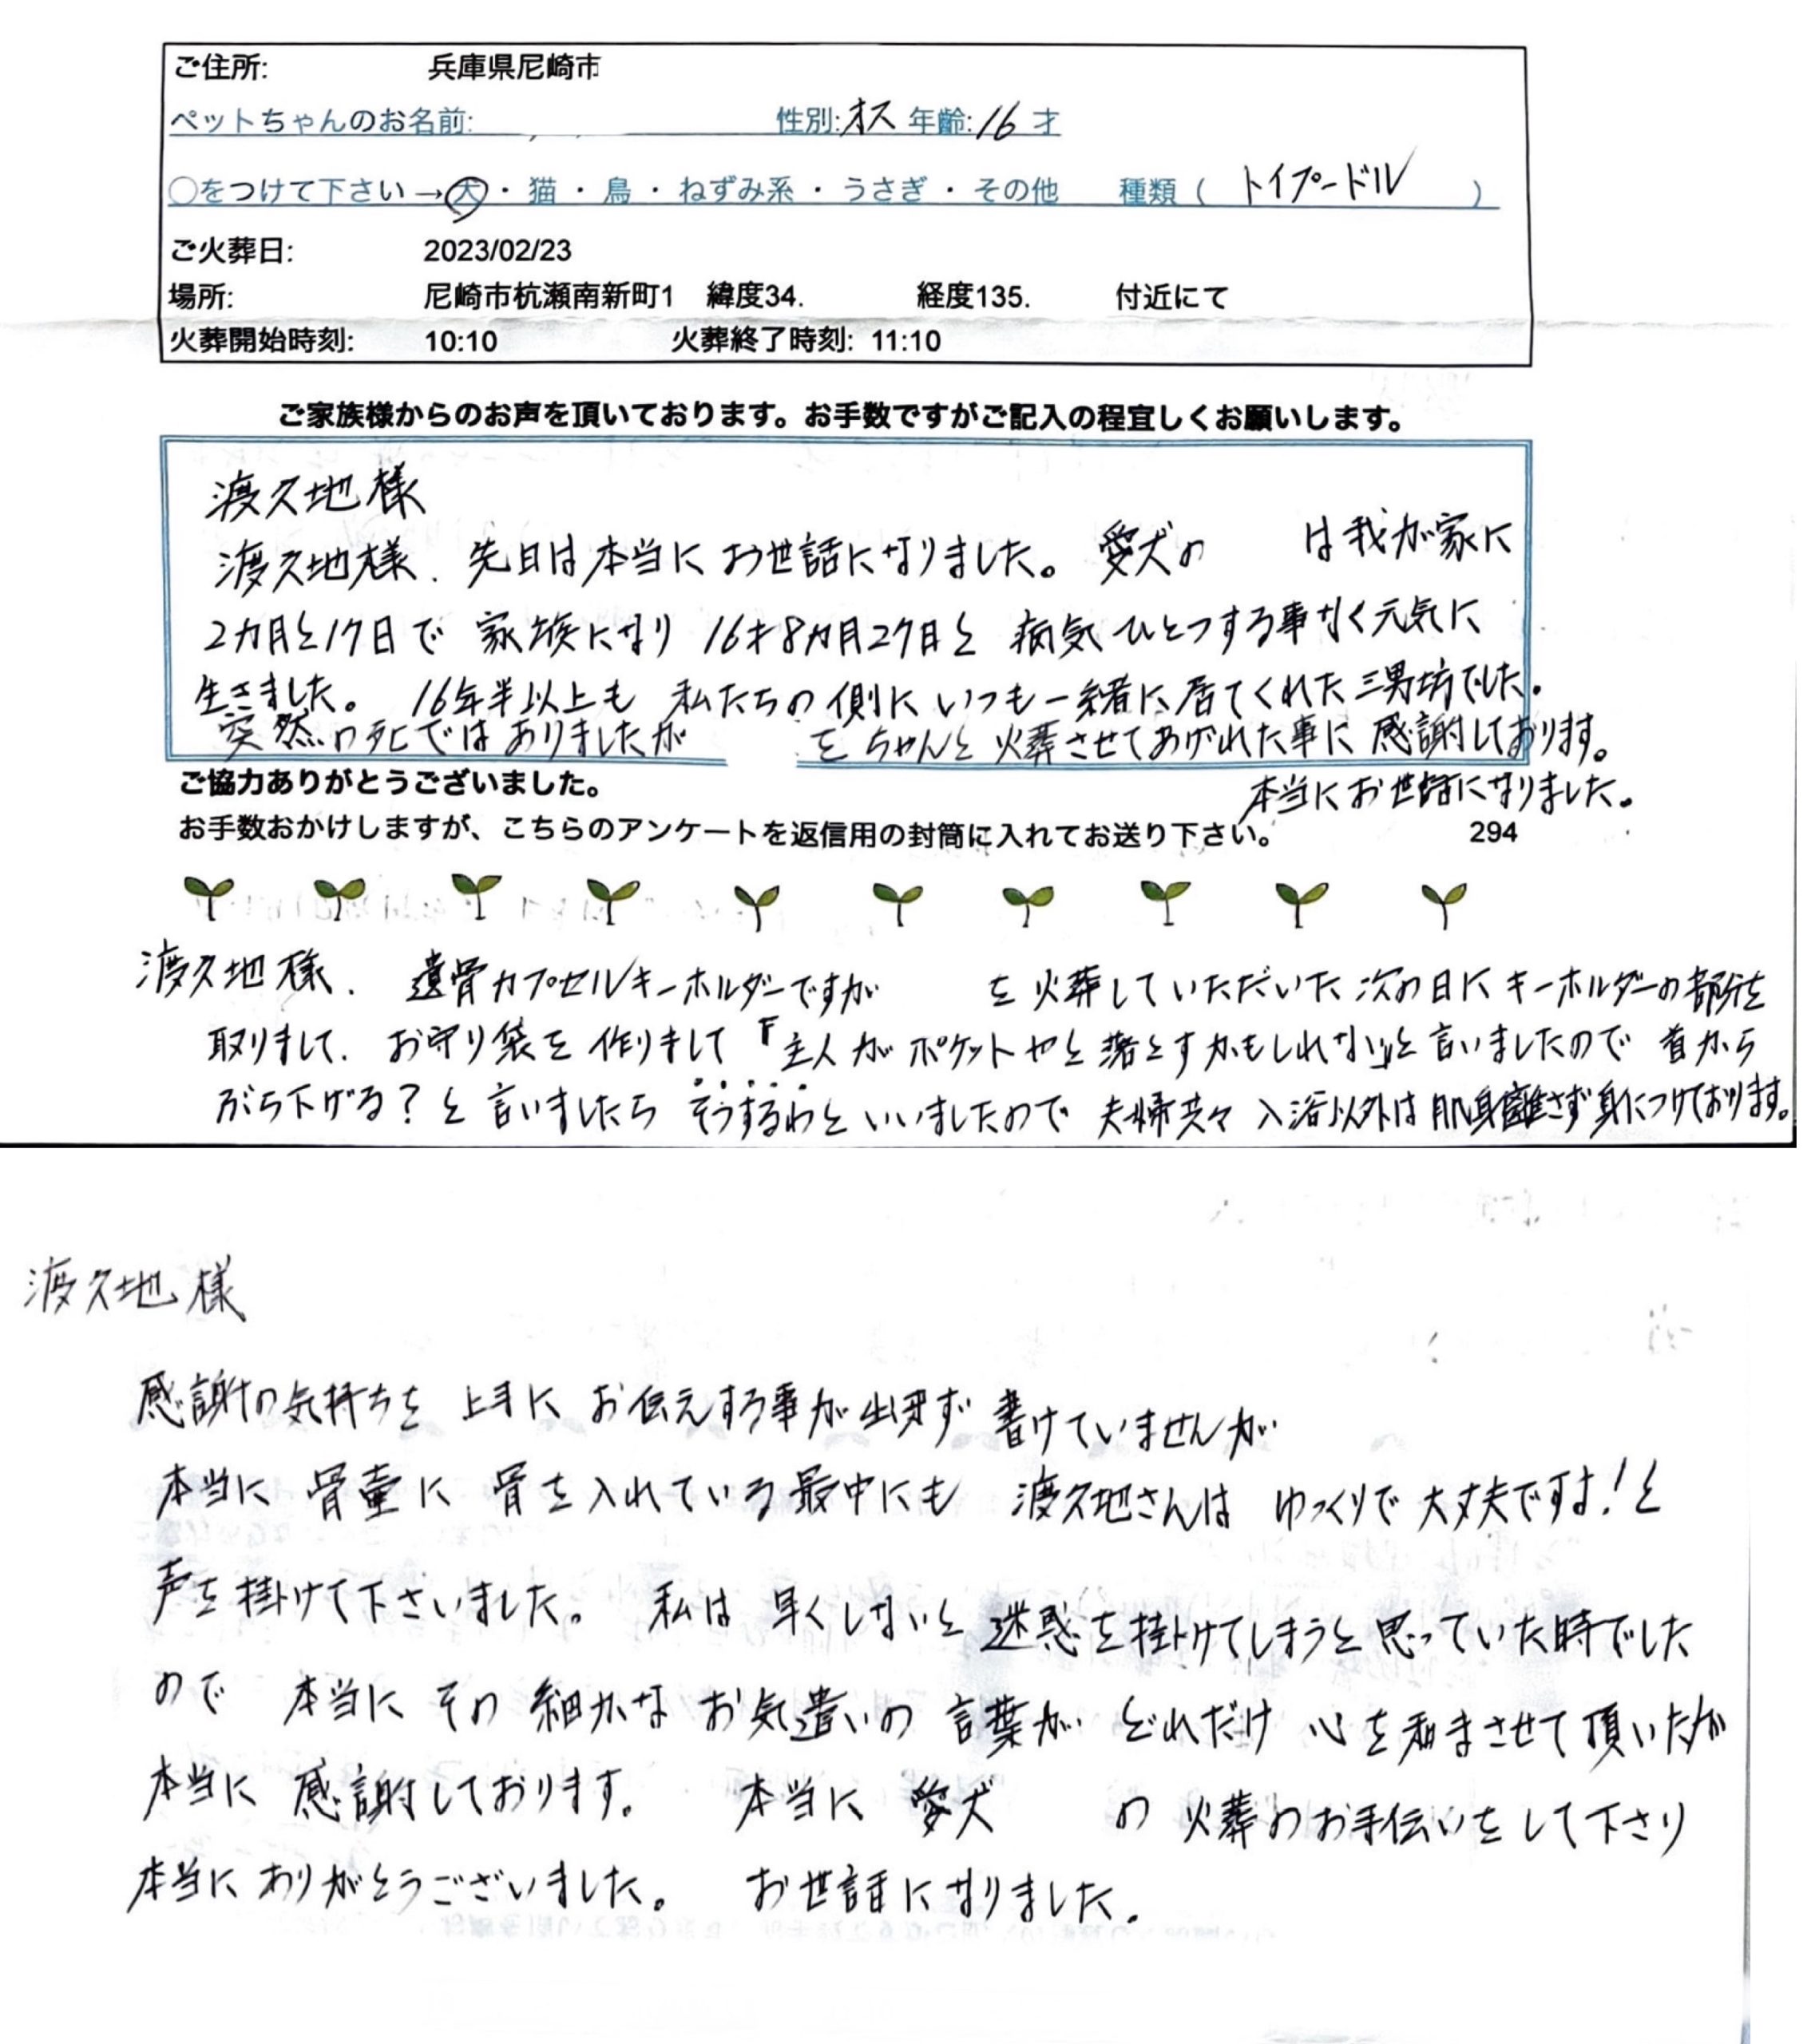 ご住所: 兵庫県尼崎市
ペットちゃんのお名前: 性別:オス 年齢:16才
○をつけて下さい→犬・猫・鳥・ねずみ系・うさぎ・その他 種類（ トイプードル ）
ご火葬日: 2023/02/23
場所: 尼崎市杭瀬南新町1 緯度34. 経度135. 付近にて
火葬開始時刻: 10:10 火葬終了時刻: 11:10
ご家族様からのお声を頂いております。お手数ですがご記入の程宜しくお願いします。
渡久地様
渡久地様、先日は本当にお世話になりました。愛犬の は我が家に
2カ月と17日で 家族になり 16才8カ月27日と 病気ひとつする事なく元気に
生きました。 16年半以上も 私たちの側に いつも一緒に居てくれた三男坊でした。
突然の死ではありましたが をちゃんと 火葬させてあげれた事に 感謝しております。
本当にお世話になりました。
ご協力ありがとうございました。
お手数おかけしますが、こちらのアンケートを返信用の封筒に入れてお送り下さい。 294
渡久地様、 遺骨カプセルキーホルダーですが を火葬していただいた次の日にキーホルダーの部分を
取りまして、お守り袋を作りまして『主人がポケットやと落とすかもしれない』と言いましたので 首から
ぶら下げる?と言いましたら そうするわといいましたので 夫婦共々 入浴以外は肌身離さず身につけております。
渡久地様
感謝の気持ちを 上手に お伝えする事が出来ず 書けていませんが
本当に 骨壷に 骨を入れている最中にも 渡久地さんは ゆっくりで大丈夫ですよ!と
声を掛けて下さいました。 私は 早くしないと 迷惑を掛けてしまうと思っていた時でした
ので 本当に その 細かな お気遣いの 言葉が どれだけ 心を和まさせて頂いたか
本当に 感謝しております。 本当に 愛犬 の 火葬のお手伝いをして下さり
本当にありがとうございました。 お世話になりました。